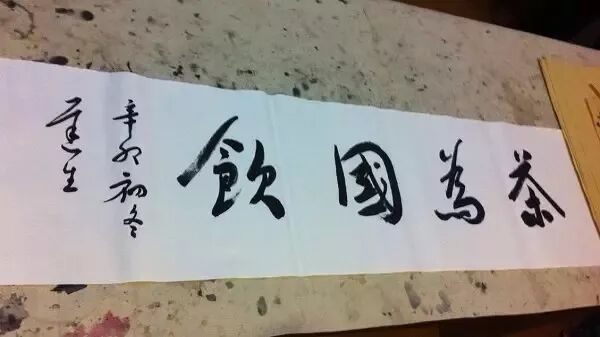 茶為國飲
辛卯初冬
生